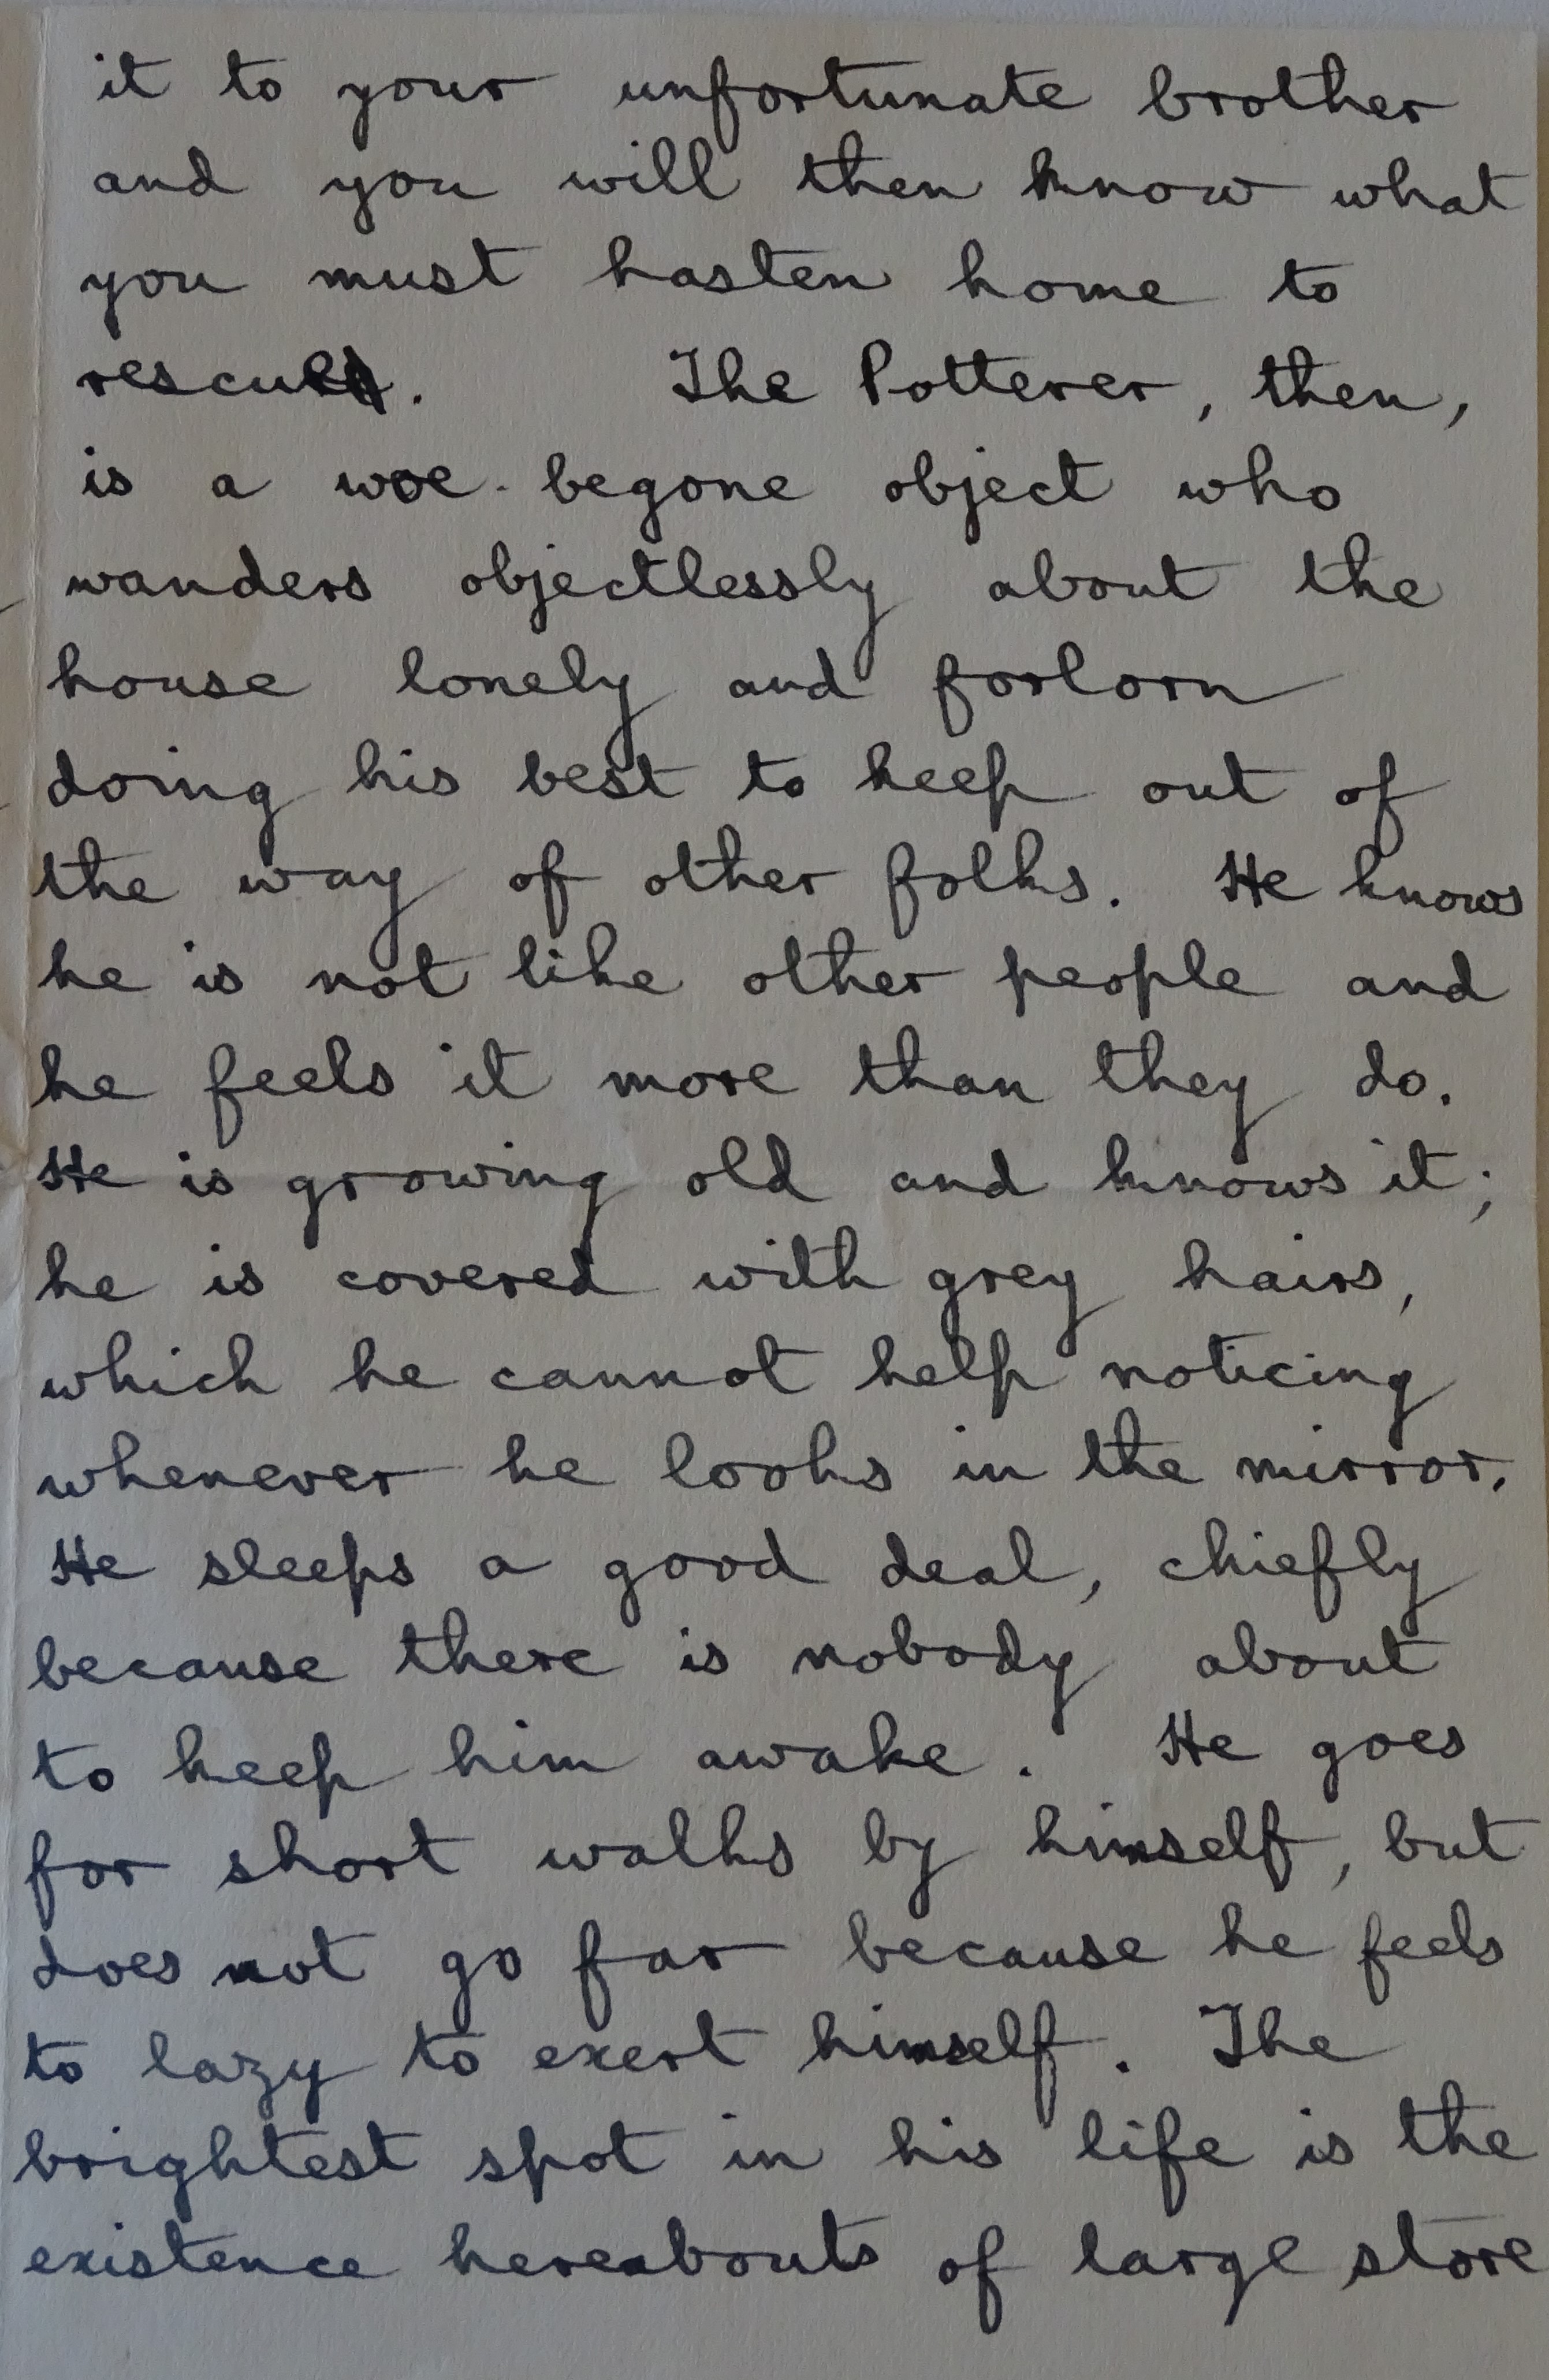 it to your unfortunate brother
and you will then know what
you must hasten home to
rescue. The Potterer, then,
is a woe-begone object who
wanders objectlessly about the
house lonely and forlorn
doing his best to keep out of
the way of other folks. He knows
he is not like other people and
he feels it more than they do.
He is growing old and knows it;
he is covered with grey hairs,
which he cannot help noticing
whenever he looks in the mirror.
He sleeps a good deal, chiefly
because there is nobody about
to keep him awake. He goes
for short walks by himself, but
does not go far because he feels
to lazy to exert himself. The
brightest spot in his life is the
existence hereabouts of large store